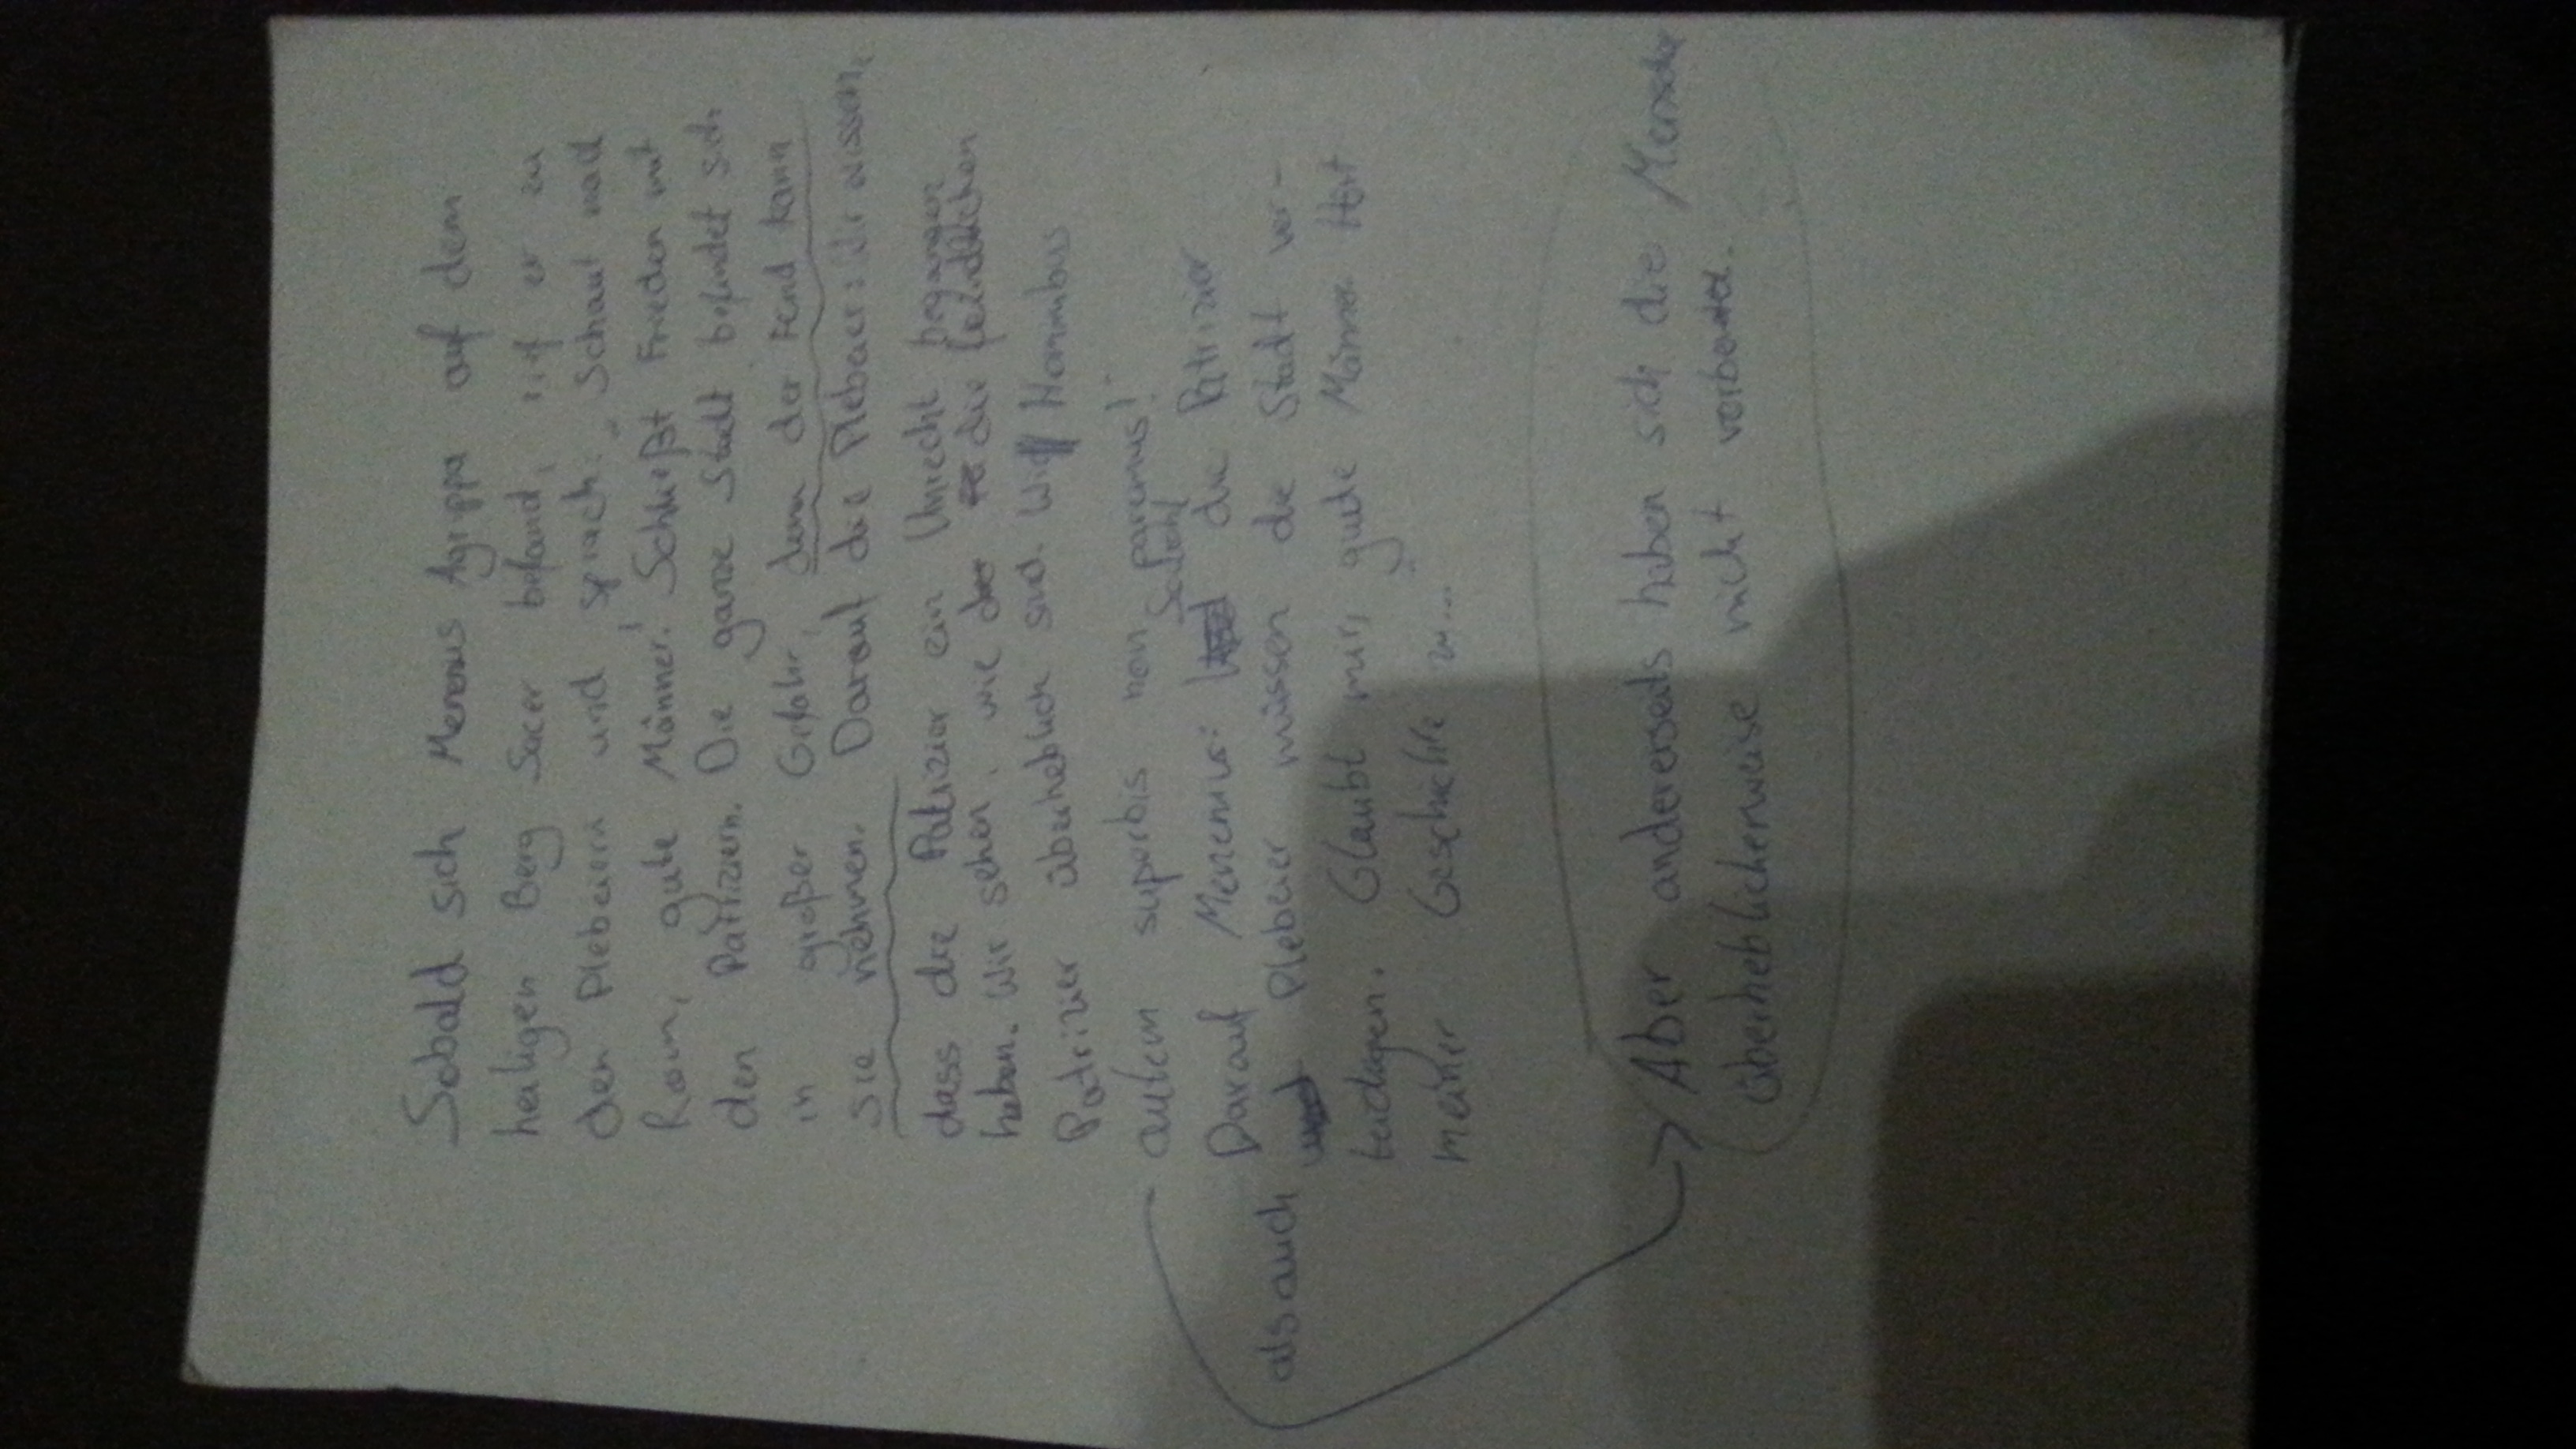 Sobald sich Menenius Agrippa auf dem
heiligen Berg Sacer befand, rief er zu
den Plebeiern und sprach: „Schaut nach
Rom, gute Männer! Schließt Frieden mit
den Patriziern. Die ganze Stadt befindet sich
in großer Gefahr, denn der Feind kann
sie nehmen. Darauf die Plebeier: Wir wissen,
dass die Patrizier ein Unrecht begangen
haben. Wir sehen, wie die feindlichen
Patrizier überheblich sind. Hominibus
autem superbis non paremus!
Darauf Menenius: Sowohl die Patrizier
als auch Plebeier müssen die Stadt ver-
teidigen. Glaubt mir, gute Männer. Hört
meiner Geschichte zu..."
Aber andererseits haben sich die
überheblicherweise nicht vorbereitet.